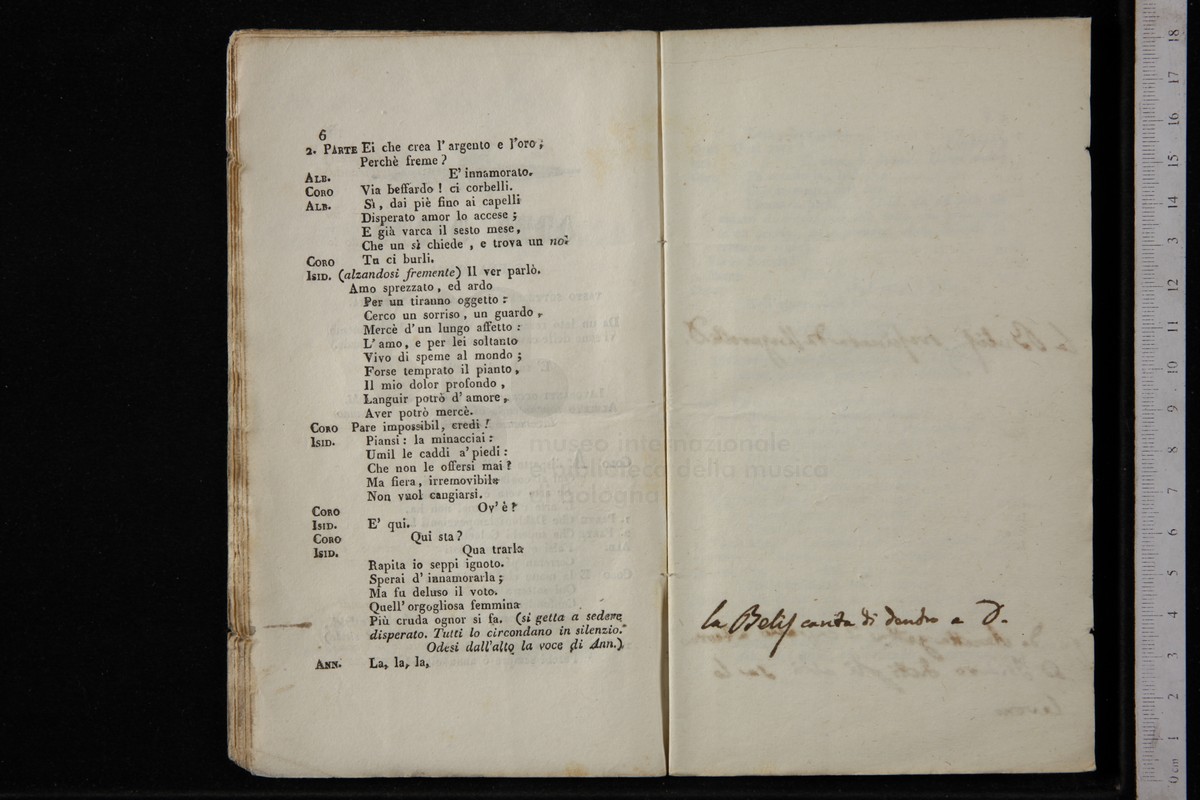 6
2. PARTE Ei che crea l'argento e l'oro;
Perchè freme?
ALB. E' innamorato.
CORO Via beffardo! ci corbelli.
ALB. Sì, dai piè fino ai capelli
Disperato amor lo accese;
E già varca il sesto mese,
Che un sì chiede, e trova un no.
CORO Tu ci burli.
ISID. (alzandosi fremente) Il ver parlò.
Amo sprezzato, ed ardo
Per un tiranno oggetto:
Cerco un sorriso, un guardo,
Mercè d'un lungo affetto:
L'amo, e per lei soltanto
Vivo di speme al mondo;
Forse temprato il pianto,
Il mio dolor profondo,
Languir potrò d'amore,
Aver potrò mercè.
CORO Pare impossibil, credi!
ISID. Piansi: la minacciai:
Umil le caddi a'piedi:
Che non le offersi mai?
Ma fiera, irremovibile
Non vuol cangiarsi.
CORO Ov'è?
ISID. E' qui.
CORO Qui sta?
ISID. Qua trarla
Rapita io seppi ignoto.
Sperai d'innamorarla;
Ma fu deluso il voto.
Quell'orgogliosa femmina
Più cruda ognor si fa. (si getta a sedere
disperato. Tutti lo circondano in silenzio.
Odesi dall'alto la voce di Ann.)
ANN. La, la, la,
la canta di dentro a D.
museo internazionale
e biblioteca della musica
di bologna
18
17
16
15
14
13
12
11
10
9
8
7
6
5
4
3
2
1
0 cm